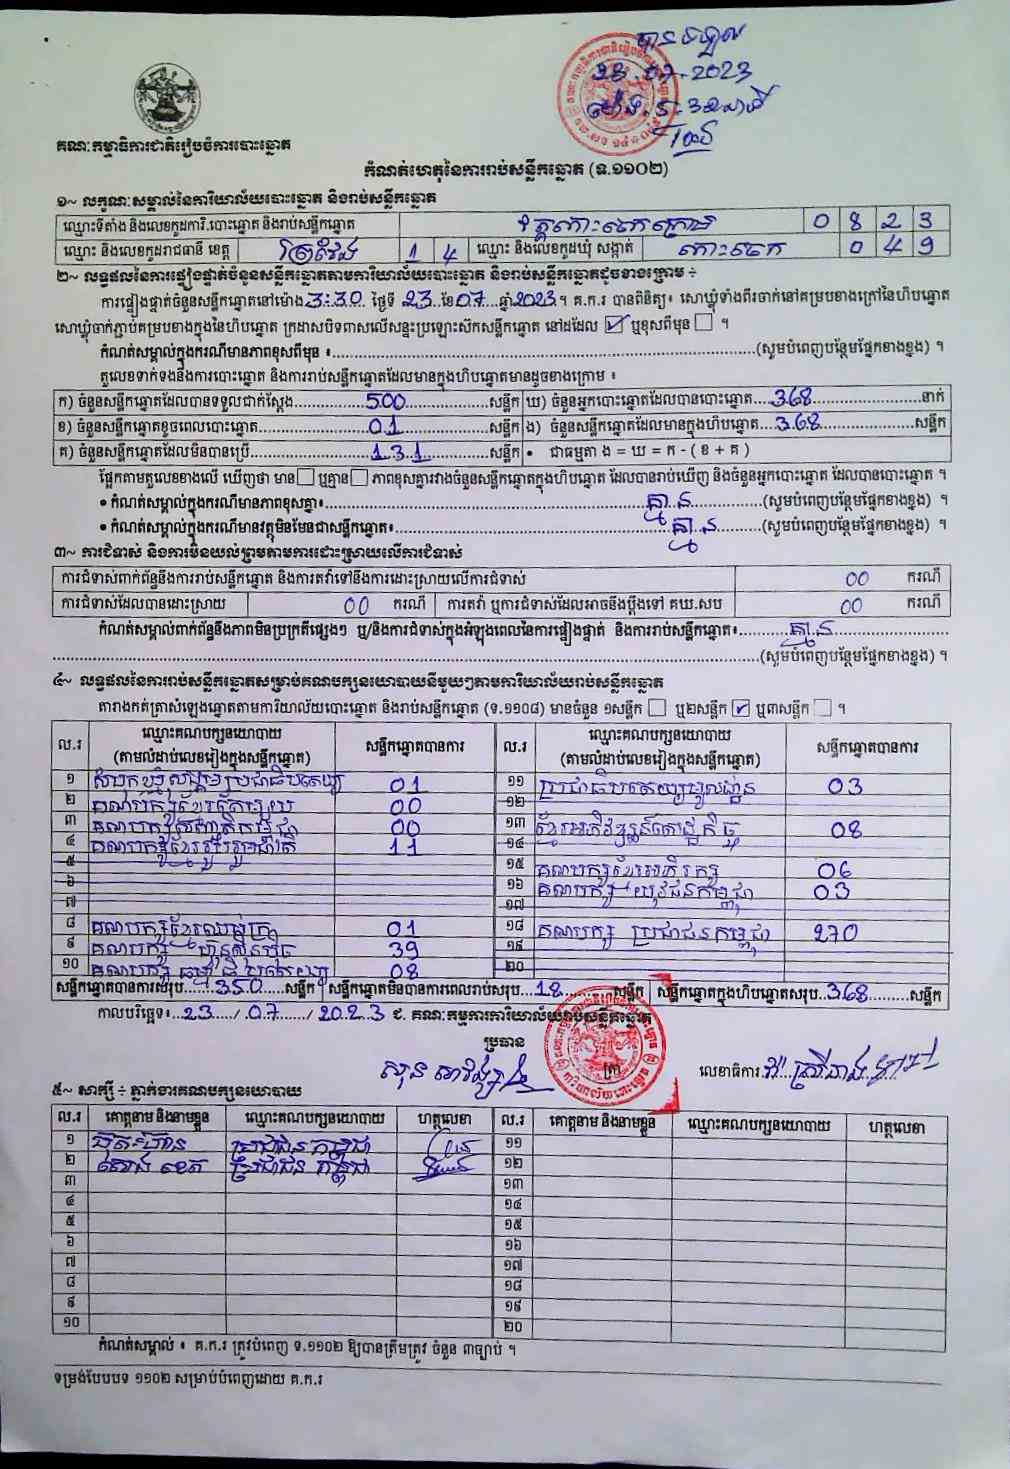 បានទទួល
23.07.2023
គណៈកម្មាធិការជាតិរៀបចំការបោះឆ្នោត
កំណត់ហេតុនៃការរាប់សន្លឹកឆ្នោត (ទ.១១០២)
១~ លក្ខណៈសម្គាល់នៃការិយាល័យបោះឆ្នោត និងរាប់សន្លឹកឆ្នោត
ឈ្មោះទីតាំង និងលេខកូដការិ.បោះឆ្នោត និងរាប់សន្លឹកឆ្នោត វត្តកោះចេកក្រោម 0 8 2 3
ឈ្មោះ និងលេខកូដរាជធានី ខេត្ត ព្រៃវែង 1 4 ឈ្មោះ និងលេខកូដឃុំ សង្កាត់ កោះចេក 0 4 9
២~ លទ្ធផលនៃការផ្ទៀងផ្ទាត់ចំនួនសន្លឹកឆ្នោតតាមការិយាល័យបោះឆ្នោត និងរាប់សន្លឹកឆ្នោតដូចខាងក្រោម ÷
ការផ្ទៀងផ្ទាត់ចំនួនសន្លឹកឆ្នោតនៅម៉ោង 3:30 ថ្ងៃទី 23 ខែ 07 ឆ្នាំ 2023 ។ គ.ក.រ បានពិនិត្យ៖ សោឃ្លុំទាំងពីរចាក់នៅគម្របខាងក្រៅនៃហិបឆ្នោត
សោឃ្លុំចាក់ភ្ជាប់គម្របខាងក្នុងនៃហិបឆ្នោត ក្រដាសបិទពាសលើសន្ទះប្រឡោះស៊កសន្លឹកឆ្នោត នៅដដែល ☑ ឬខុសពីមុន ☐ ។
កំណត់សម្គាល់ក្នុងករណីមានភាពខុសពីមុន ៖ (សូមបំពេញបន្ថែមផ្នែកខាងខ្នង) ។
តួលេខទាក់ទងនឹងការបោះឆ្នោត និងការរាប់សន្លឹកឆ្នោតដែលមានក្នុងហិបឆ្នោតមានដូចខាងក្រោម ៖
ក) ចំនួនសន្លឹកឆ្នោតដែលបានទទួលជាក់ស្តែង 500 សន្លឹក ឃ) ចំនួនអ្នកបោះឆ្នោតដែលបានបោះឆ្នោត 368 នាក់
ខ) ចំនួនសន្លឹកឆ្នោតខូចពេលបោះឆ្នោត 01 សន្លឹក ង) ចំនួនសន្លឹកឆ្នោតដែលមានក្នុងហិបឆ្នោត 368 សន្លឹក
គ) ចំនួនសន្លឹកឆ្នោតដែលមិនបានប្រើ 131 សន្លឹក • ជាធម្មតា ង = ឃ = ក - ( ខ + គ )
ផ្អែកតាមតួលេខខាងលើ ឃើញថា មាន ☐ ឬគ្មាន ☐ ភាពខុសគ្នារវាងចំនួនសន្លឹកឆ្នោតក្នុងហិបឆ្នោត ដែលបានរាប់ឃើញ និងចំនួនអ្នកបោះឆ្នោត ដែលបានបោះឆ្នោត ។
• កំណត់សម្គាល់ក្នុងករណីមានភាពខុសគ្នា៖ គ្មាន (សូមបំពេញបន្ថែមផ្នែកខាងខ្នង) ។
• កំណត់សម្គាល់ក្នុងករណីមានវត្ថុមិនមែនជាសន្លឹកឆ្នោត៖ គ្មាន (សូមបំពេញបន្ថែមផ្នែកខាងខ្នង) ។
៣~ ការជំទាស់ និងការមិនយល់ព្រមតាមការដោះស្រាយលើការជំទាស់
ការជំទាស់ពាក់ព័ន្ធនឹងការរាប់សន្លឹកឆ្នោត និងការតវ៉ាទៅនឹងការដោះស្រាយលើការជំទាស់ 00 ករណី
ការជំទាស់ដែលបានដោះស្រាយ 00 ករណី ការតវ៉ា ឬការជំទាស់ដែលអាចនឹងប្តឹងទៅ គឃ.សប 00 ករណី
កំណត់សម្គាល់ពាក់ព័ន្ធនឹងភាពមិនប្រក្រតីផ្សេងៗ ឬ/និងការជំទាស់ក្នុងអំឡុងពេលនៃការផ្ទៀងផ្ទាត់ និងការរាប់សន្លឹកឆ្នោត៖ គ្មាន
(សូមបំពេញបន្ថែមផ្នែកខាងខ្នង) ។
៤~ លទ្ធផលនៃការរាប់សន្លឹកឆ្នោតសម្រាប់គណបក្សនយោបាយនីមួយៗតាមការិយាល័យរាប់សន្លឹកឆ្នោត
តារាងកត់ត្រាសំឡេងឆ្នោតតាមការិយាល័យបោះឆ្នោត និងរាប់សន្លឹកឆ្នោត (ទ.១១០៨) មានចំនួន ១សន្លឹក ☐ ឬ២សន្លឹក ☑ ឬ៣សន្លឹក ☐ ។
ល.រ ឈ្មោះគណបក្សនយោបាយ (តាមលំដាប់លេខរៀងក្នុងសន្លឹកឆ្នោត) សន្លឹកឆ្នោតបានការ ល.រ ឈ្មោះគណបក្សនយោបាយ (តាមលំដាប់លេខរៀងក្នុងសន្លឹកឆ្នោត) សន្លឹកឆ្នោតបានការ
១ សំបុកឃ្មុំសង្គមប្រជាធិបតេយ្យ 01 ១១ ប្រជាធិបតេយ្យមូលដ្ឋាន 03
២ គណបក្សខ្មែរតែមួយ 00 ១២
៣ គណបក្សសញ្ជាតិកម្ពុជា 00 ១៣ ខ្មែរអភិវឌ្ឍន៍សេដ្ឋកិច្ច 08
៤ គណបក្សខ្មែររួបរួមជាតិ 11 ១៤
៥ ១៥ គណបក្សខ្មែរអភិរក្ស 06
៦ ១៦ គណបក្ស យុវជនកម្ពុជា 03
៧ ១៧
៨ គណបក្សខ្មែរឈប់ក្រ 01 ១៨ គណបក្ស ប្រជាជនកម្ពុជា 270
៩ គណបក្ស ហ៊្វុនស៊ិនប៉ិច 39 ១៩
១០ គណបក្ស ធម្មាធិបតេយ្យ 08 ២០
សន្លឹកឆ្នោតបានការសរុប 350 សន្លឹក សន្លឹកឆ្នោតមិនបានការពេលរាប់សរុប 18 សន្លឹក សន្លឹកឆ្នោតក្នុងហិបឆ្នោតសរុប 368 សន្លឹក
កាលបរិច្ឆេទ៖ 23 / 07 / 2023 ជ. គណៈកម្មការការិយាល័យរាប់សន្លឹកឆ្នោត
ប្រធាន
លេខាធិការ
៥~ សាក្សី ÷ ភ្នាក់ងារគណបក្សនយោបាយ
ល.រ គោត្តនាម និងនាមខ្លួន ឈ្មោះគណបក្សនយោបាយ ហត្ថលេខា ល.រ គោត្តនាម និងនាមខ្លួន ឈ្មោះគណបក្សនយោបាយ ហត្ថលេខា
១ ប្រជាជនកម្ពុជា ១១
២ ប្រជាជន កម្ពុជា ១២
៣ ១៣
៤ ១៤
៥ ១៥
៦ ១៦
៧ ១៧
៨ ១៨
៩ ១៩
១០ ២០
កំណត់សម្គាល់ ៖ គ.ក.រ ត្រូវបំពេញ ទ.១១០២ ឱ្យបានត្រឹមត្រូវ ចំនួន ៣ច្បាប់ ។
ទម្រង់បែបបទ ១១០២ សម្រាប់បំពេញដោយ គ.ក.រ